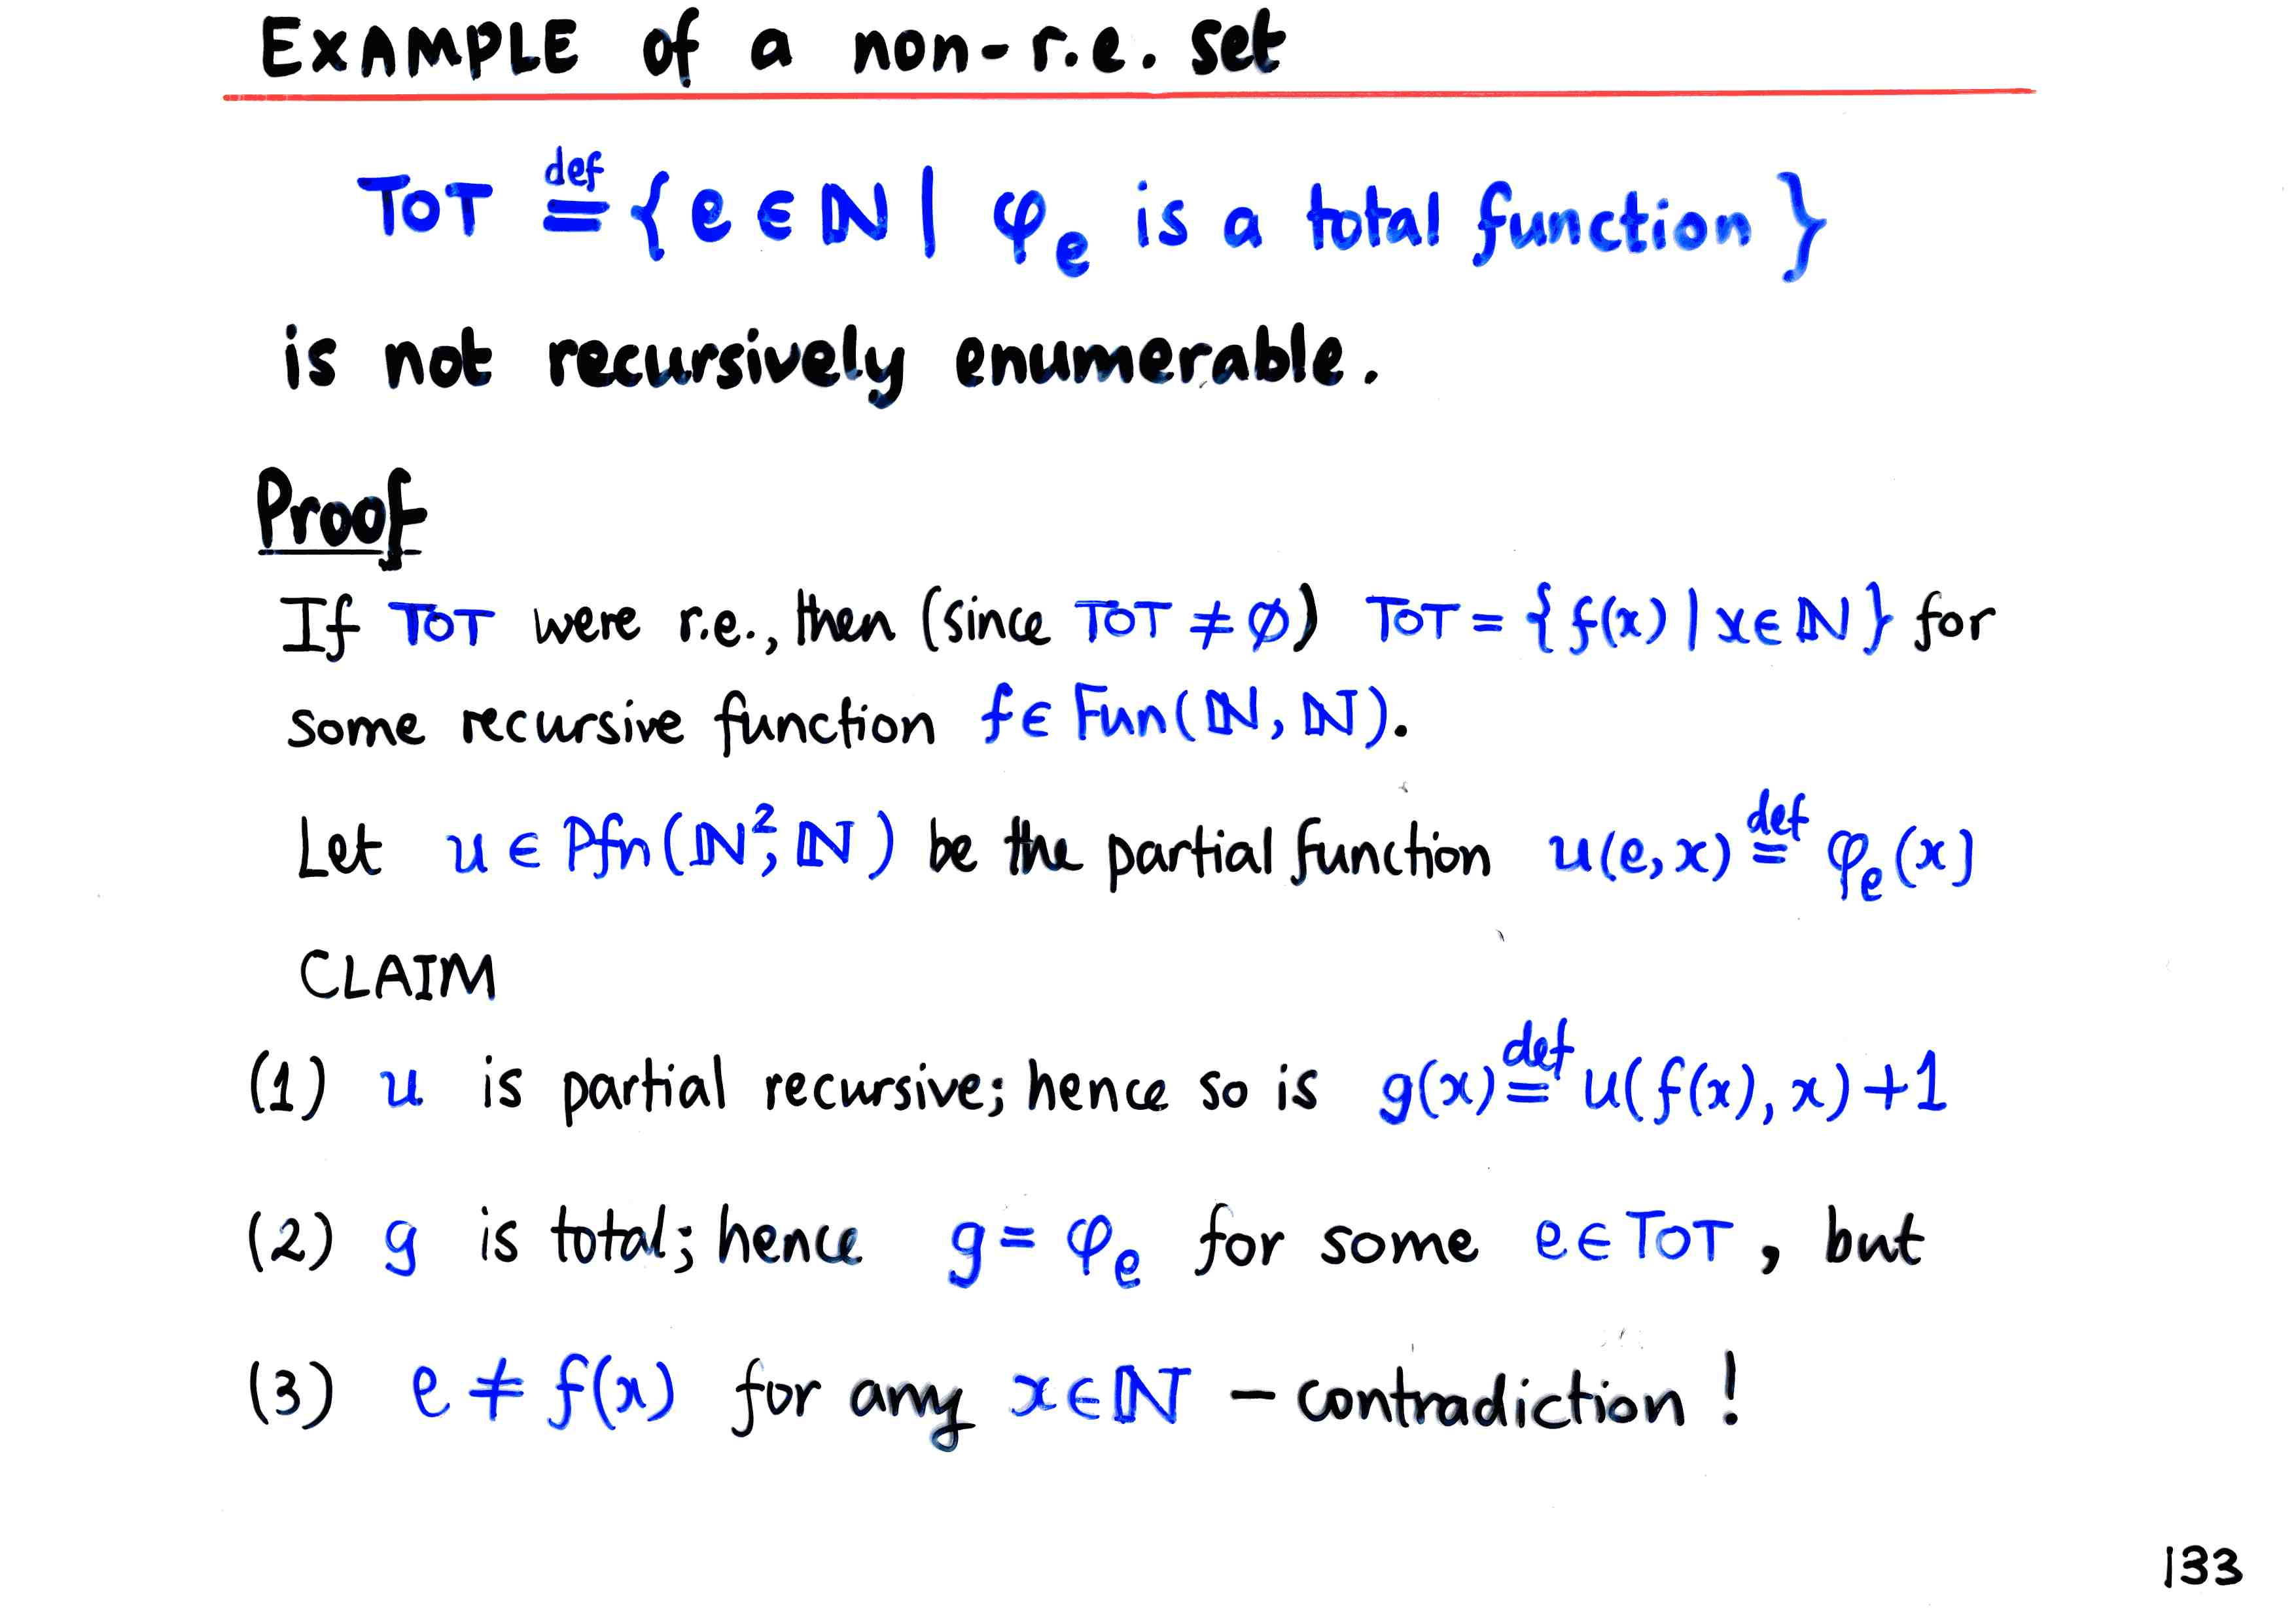 EXAMPLE of a non-r.e. set
TOT def= { e ∈ ℕ | φₑ is a total function }
is not recursively enumerable.
Proof
If TOT were r.e., then (since TOT ≠ ∅) TOT = {f(x) | x ∈ ℕ} for
some recursive function f ∈ Fun(ℕ, ℕ).
Let u ∈ Pfn(ℕ², ℕ) be the partial function u(e, x) def= φₑ(x)
CLAIM
(1) u is partial recursive; hence so is g(x) def= u(f(x), x) + 1
(2) g is total; hence g = φₑ for some e ∈ TOT, but
(3) e ≠ f(x) for any x ∈ ℕ – contradiction!
133